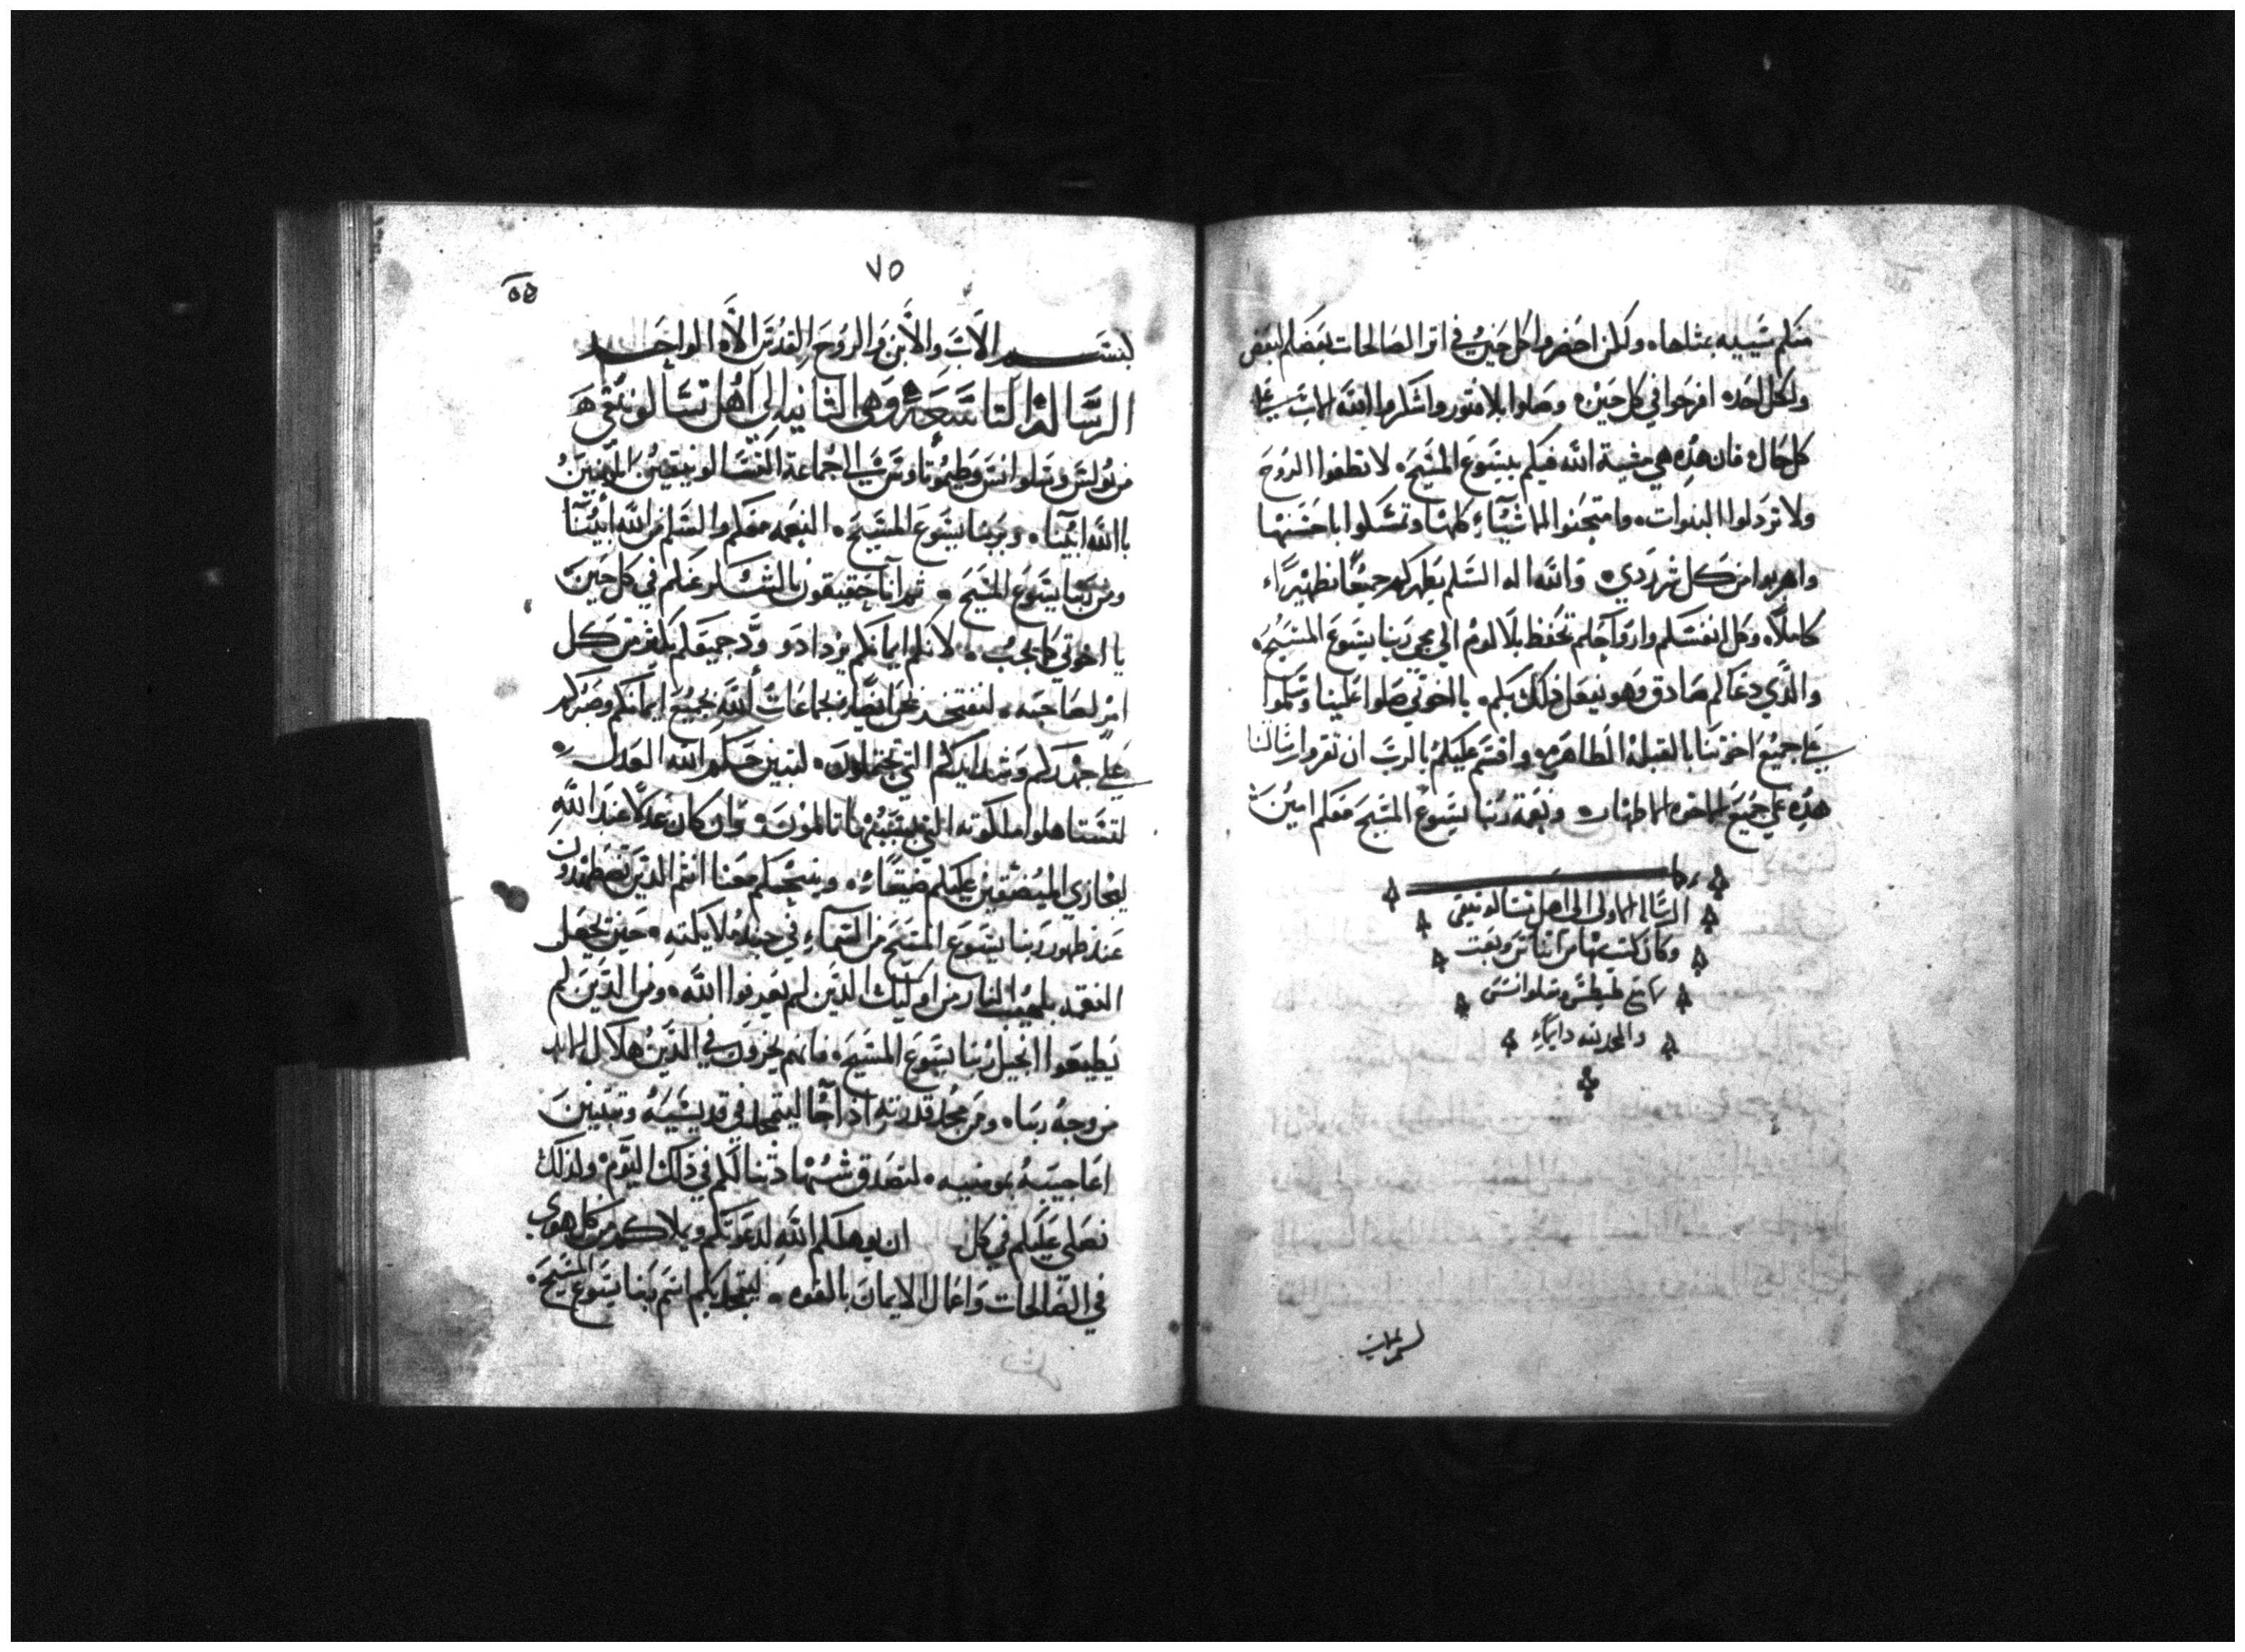 منكم شييه بمثلها، ولكن احضروا كل حين في اثر الصالحات بعضكم لبعض
ولكل احد، افرحوا في كل حين، وصلوا بلا فتور واشكروا الله الاب على
كل حال، فان هذه هي مشية الله فيكم بيسوع المسيح، لا تطفوا الروح
ولا تردلوا النبوات، وامتحنوا الاشيآء كلها وتمسكوا باحسنها
واهربوا من كل شر ردي، والله اله السلم يطهركم جميعا تطهيراء
كاملاً، وكل انفسكم وارواحكم تحفظ بلا لوم الى مجي ربنا يسوع المسيح،
والذي دعاكم صادق وهو يفعل ذلك بكم، يا اخوتي صلوا علينا وسلموا
على جميع اخوتنا بالقبله الطاهره، واقسم عليكم بالرب ان تقروا رسالتنا
هذه على جميع الاخوه الاطهار، ونعمة ربنا يسوع المسيح معكم امين
الرسالة الاولى الى اهل تسالونيقى
وكان كتب بها من اتناس وبعث
مع طيطس وسلوانس
والمجد لله دايماً
٧٥
٥٥
بسم الاب والابن والروح القدس الاله الواحد
الرسالة التاسعة وهي الثانيه الى اهل تسالونيقي
من بولس وسلوانس وطيموتاوس الى جماعة التسالونيقيين المومنين
باالله ابينا، وبربنا يسوع المسيح، النعمه معكم والسلم من الله ابينا
ومن ربنا يسوع المسيح، ثم انا حقيقون بالشكر عنكم في كل حين
يا اخوتي كما يجب، لانكم ايمانكم يزداد و ودّ جميعكم يكثر من كل
امر لصاحبه، لنفتخر نحن ايضا بجماعات الله بجميع ايمانكم وصبركم
على جهدكم وشدايدكم التي تحتملون، لتبين حكم الله العدل
لتستاهلوا ملكوته التي بسببها تالمون، وان كان عدلا عند الله
ليجازي المضيقين عليكم ضيقاً، وينجيكم معنا انتم الذين تضطهدون
عند ظهور ربنا يسوع المسيح من السماء في جند ملايكته، حين يجعل
النقمه بلهيب النار من اوليك الذين لم يعرفوا الله، ومن الذين لم
يطيعوا انجيل ربنا يسوع المسيح، فانهم يجزون في الدين هلاك الابد
من وجه ربنا، ومن مجد قدرته اذا جا ليتمجد في قديسيه وتتبين
اعاجيبه بمومنيه، لتصدق شهادتنا لكم في ذلك اليوم، ولذلك
نصلي عليكم في كل ان يوهلكم الله لدعوتكم ويملاكم من كل هوى
في الصالحات واعمال الايمان بالقوه، ليتمجد بكم اسم ربنا يسوع المسيح،